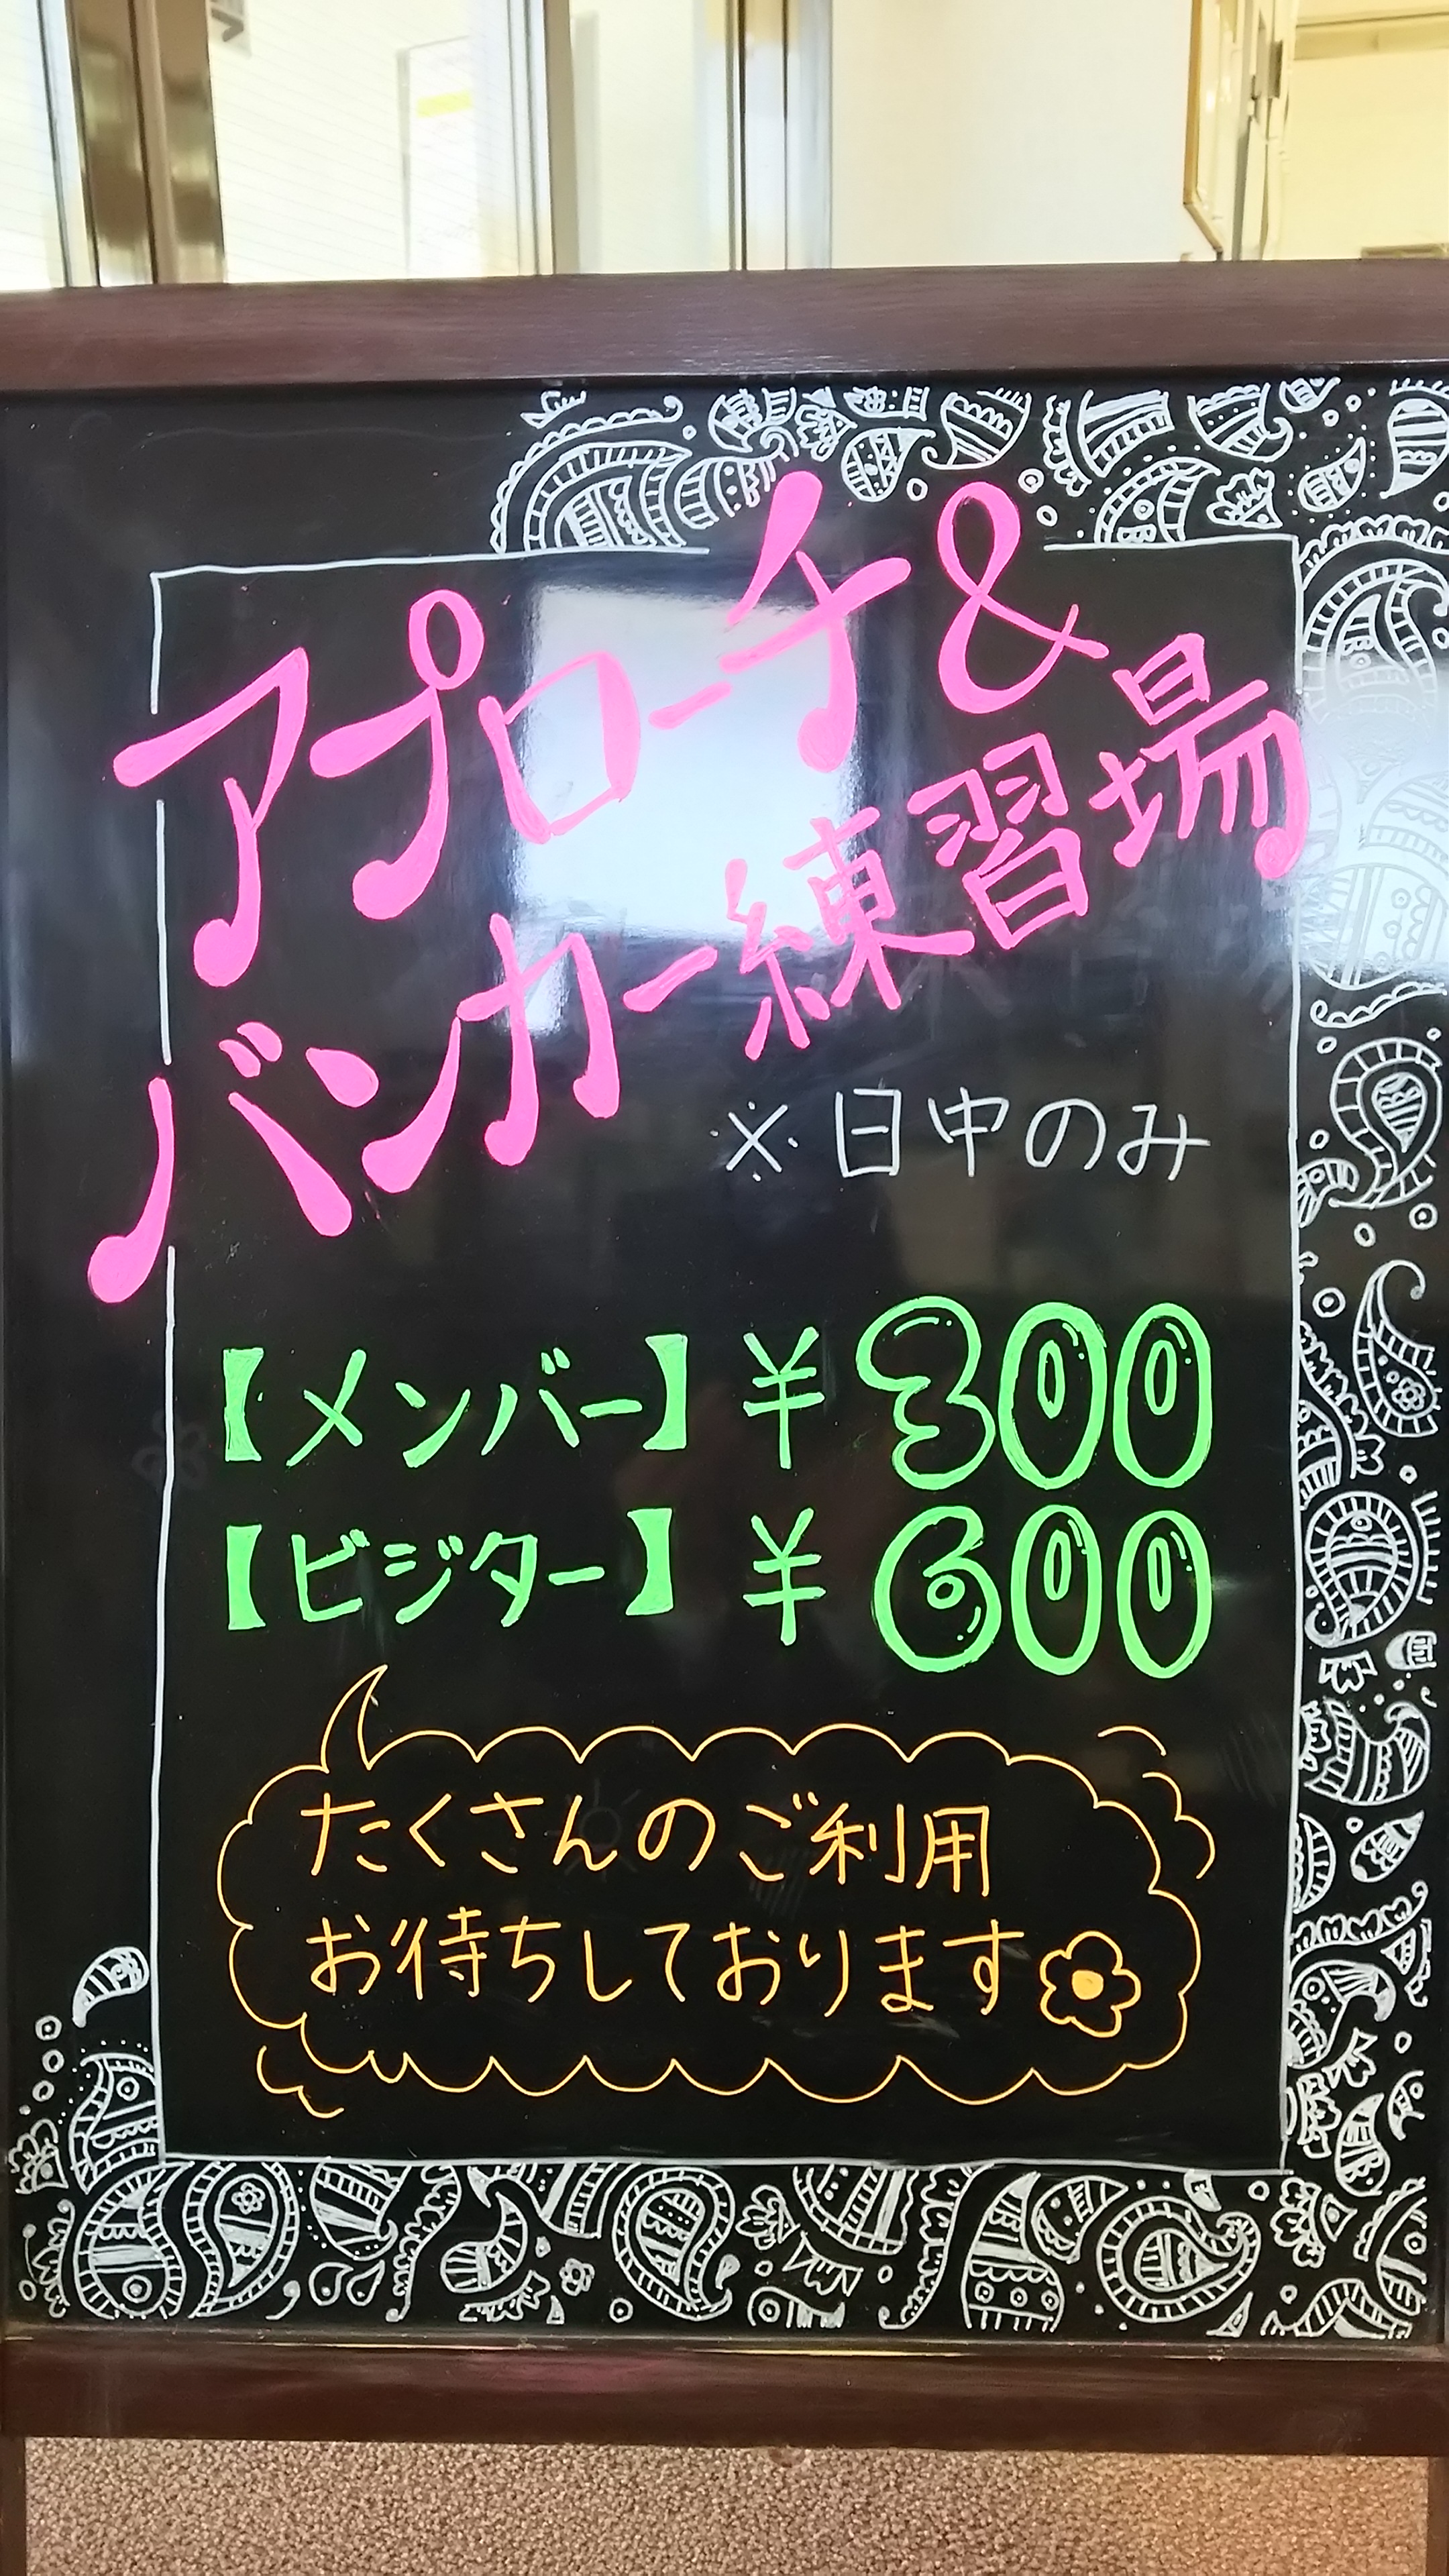 アプローチ&
バンカー練習場
※日中のみ
【メンバー】¥300
【ビジター】¥600
たくさんのご利用
お待ちしております